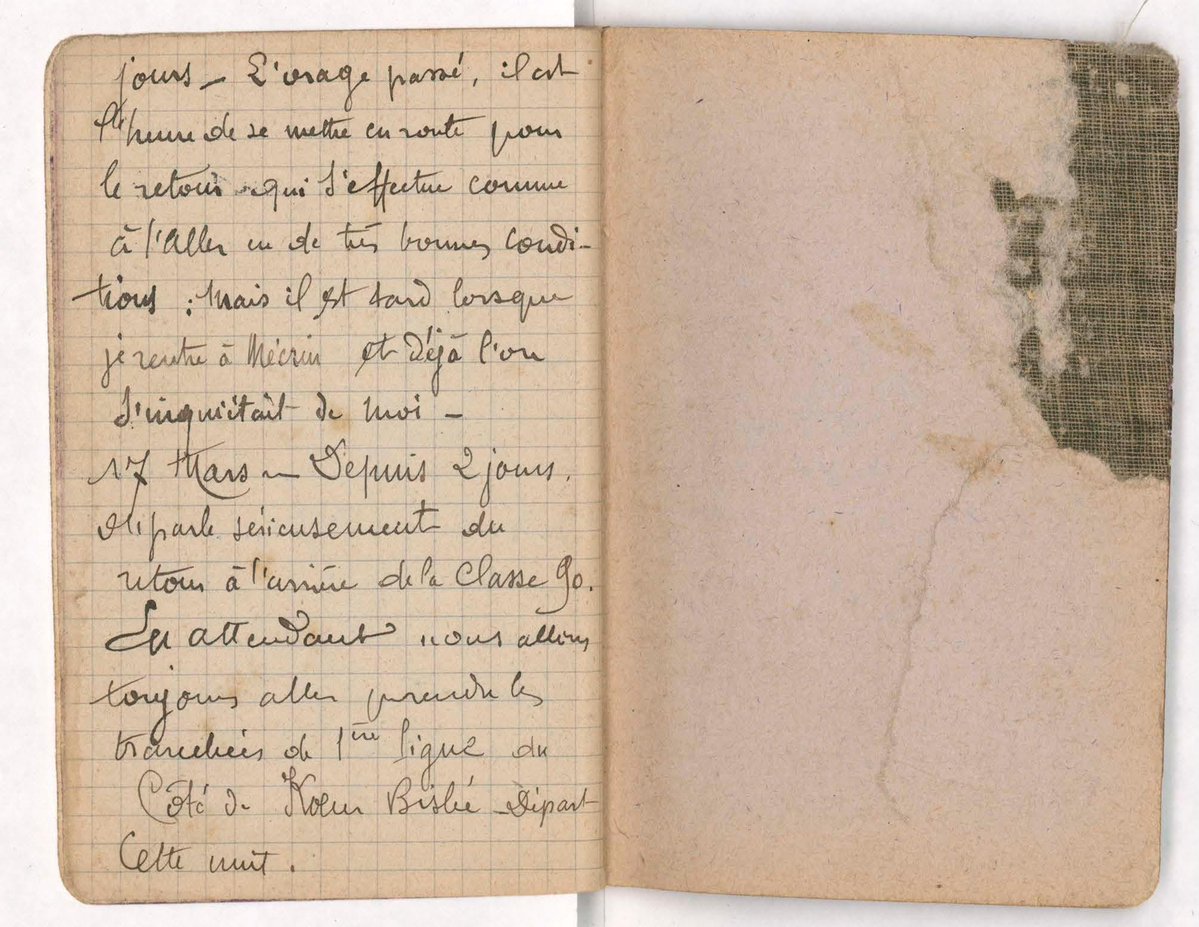 jours – L'orage passé, il est
l'heure de se mettre en route pour
le retour qui s'effectue comme
à l'Aller en de très bonnes condi-
tions ; Mais il est tard lorsque
je rentre à Mécrin et déjà l'on
s'inquiétait de moi –
17 Mars – Depuis 2 jours.
parle sérieusement du
retour à l'arrière de la Classe 90.
En attendant nous allons
toujours aller prendre les
tranchées de 1ère ligne du
Côté de Koeur – Départ
Cette nuit.